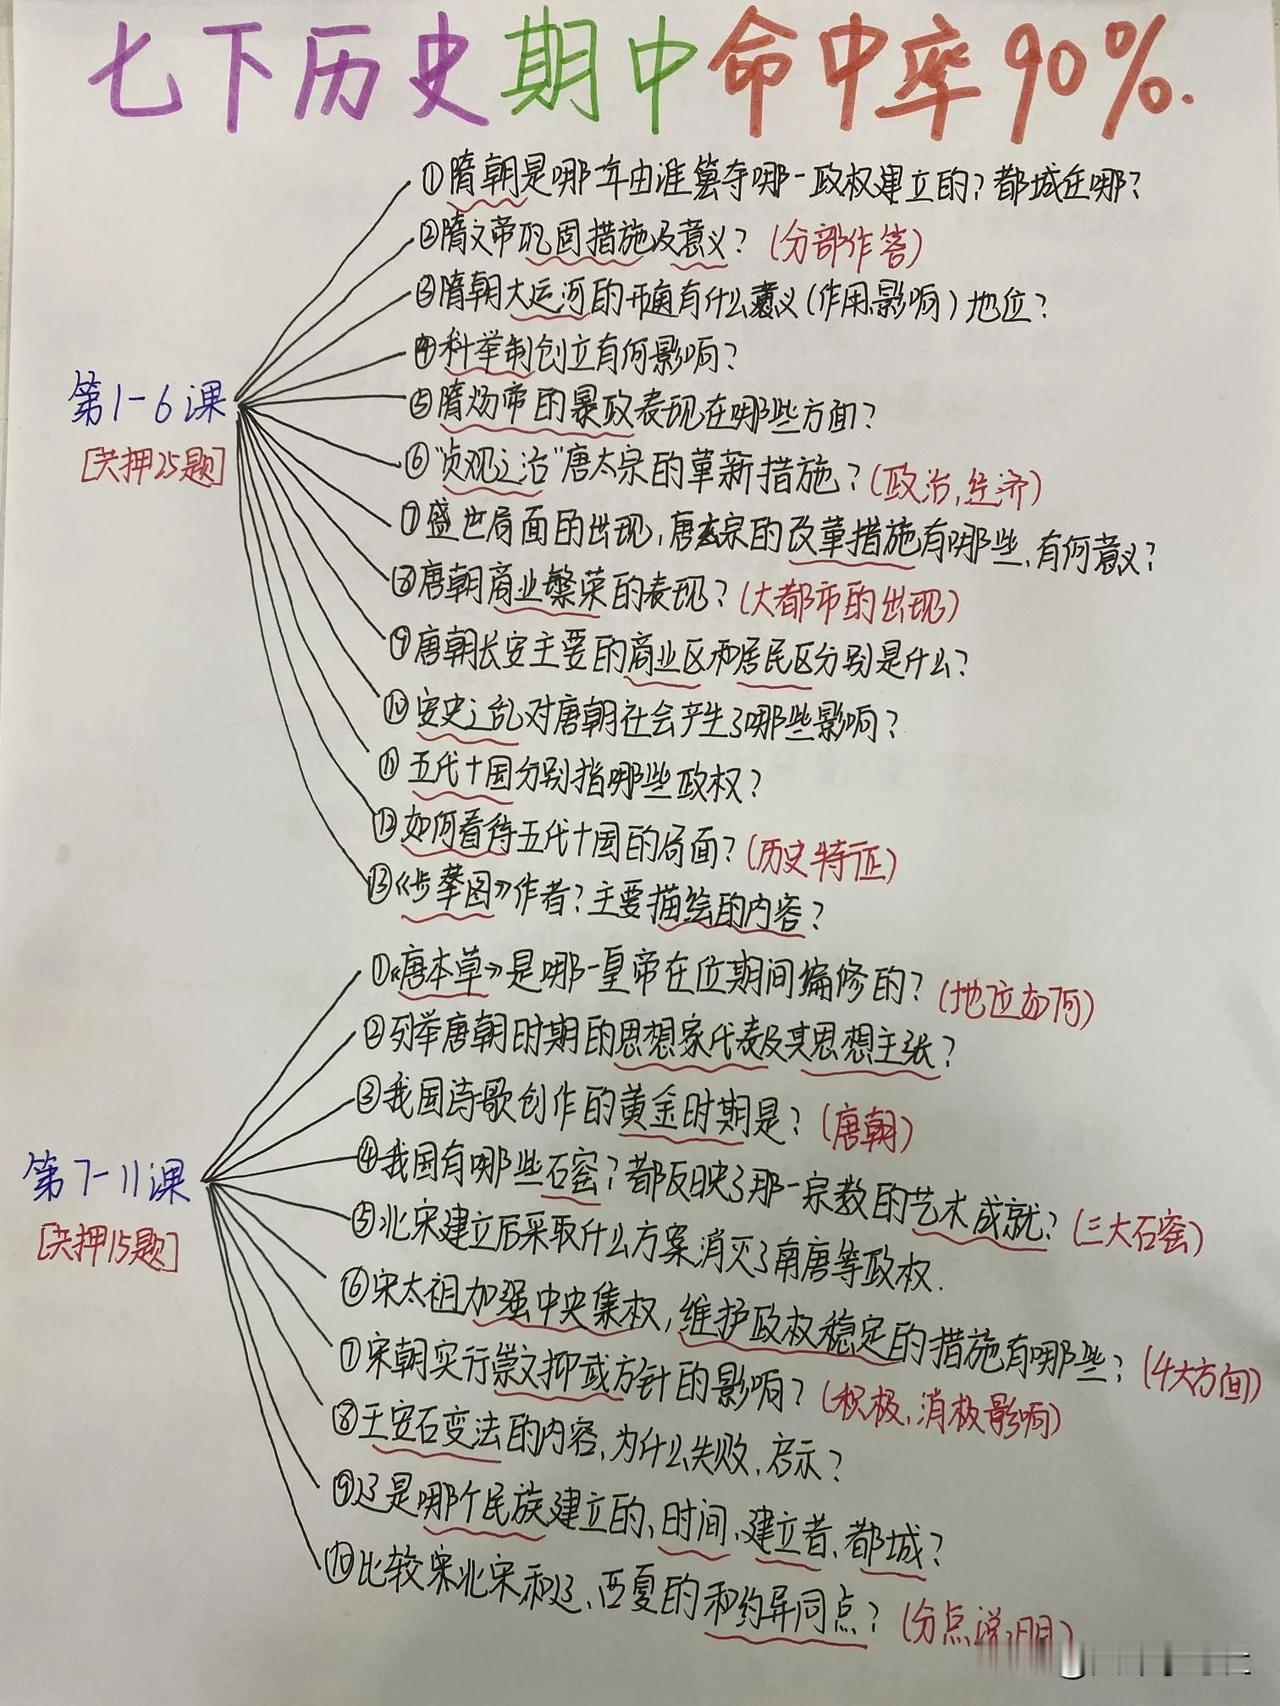 七下历史期中命中率90%.
①隋朝是哪年由谁篡夺哪一政权建立的?都城在哪?
②隋文帝巩固措施及意义?(分部作答)
③隋朝大运河的开通有什么意义(作用.影响)地位?
④科举制创立有何影响?
⑤隋炀帝的暴政表现在哪些方面?
第1-6课
[共押25题]
⑥"贞观之治"唐太宗的革新措施?(政治,经济)
⑦盛世局面的出现,唐玄宗的改革措施有哪些,有何意义?
⑧唐朝商业繁荣的表现?(大都市的出现)
⑨唐朝长安主要的商业区和居民区分别是什么?
⑩安史之乱对唐朝社会产生了哪些影响?
⑪五代十国分别指哪些政权?
⑫如何看待五代十国的局面?(历史特征)
⑬《步辇图》作者?主要描绘的内容?
①《唐本草》是哪一皇帝在位期间编修的?(地位如何)
②列举唐朝时期的思想家代表及其思想主张?
③我国诗歌创作的黄金时期是?(唐朝)
④我国有哪些石窑?都反映了那一宗教的艺术成就?(三大石窑)
第7-11课
[共押15题]
⑤北宋建立后采取什么方案消灭了南唐等政权.
⑥宋太祖加强中央集权,维护政权稳定的措施有哪些?(4大方面)
⑦宋朝实行崇文抑武方针的影响?(积极,消极影响)
⑧王安石变法的内容,为什么失败,启示?
⑨辽是哪个民族建立的、时间、建立者、都城?
⑩比较宋北宋和辽、西夏的和约异同点?(分点说明)